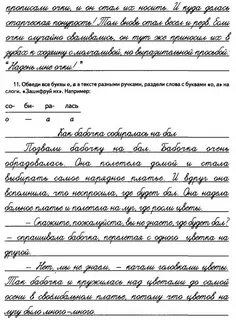 прописали очки, и он стал их носить. И куда делась
старческая понурость! Таи вновь стал весел и резв. Если
очки случайно сваливались, он тут же приносил их в
зубах к хозяину с молчаливой, но выразительной просьбой:
"Надень мне очки!"
11. Обведи все буквы о, а в тексте разными ручками, раздели слова с буквами «о, а» на
слоги. «Зашифруй их». Например:
со- би- ра- лась
о — а а
Как бабочка собиралась на бал
Позвали бабочку на бал. Бабочка очень
обрадовалась. Она полетела домой и стала
выбирать самое нарядное платье. И вдруг она
вспомнила, что неспросила, где будет бал. Она надела
бальное платье и полетела на луг, где росли цветы.
– Скажите, пожалуйста, вы не знаете, где будет бал?
- спрашивала бабочка, перелетая с одного цветка на
другой.
– Нет, мы не знаем. – качали головками цветы.
Так бабочка и кружилась над цветами до самой
осени в своёмбальном платье, потому что цветов на
лугу было много-много.